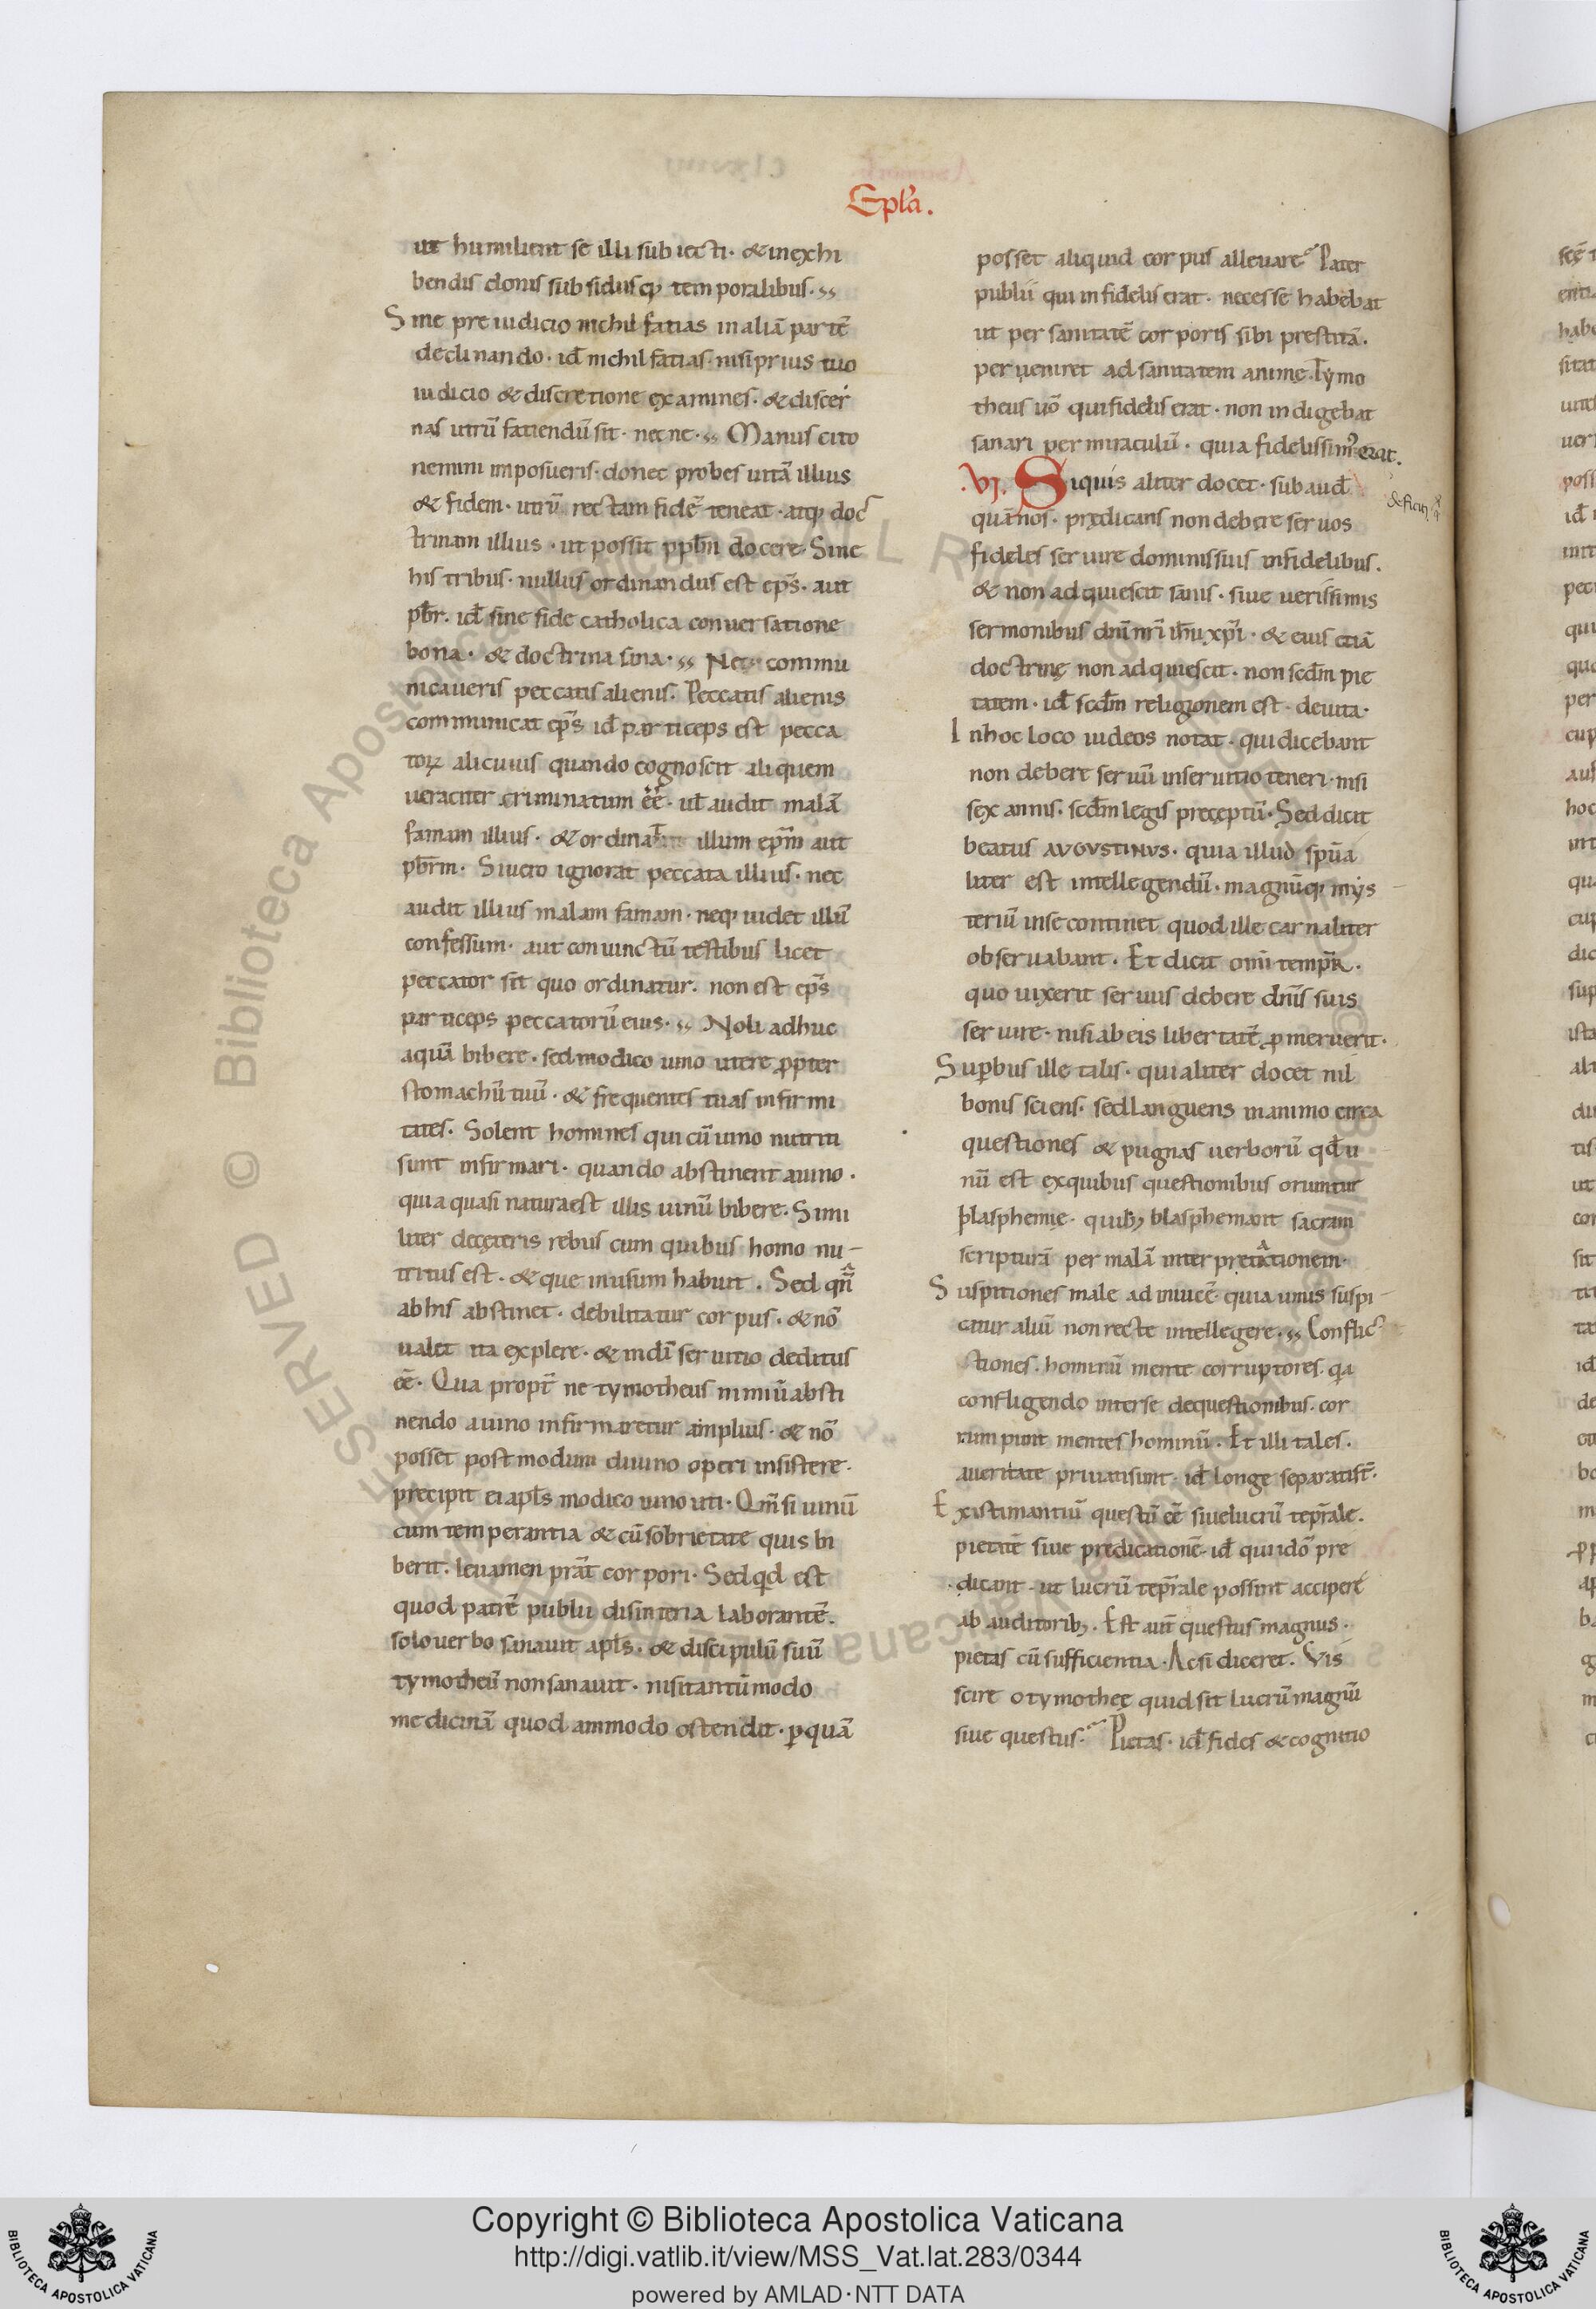 Epl̃a.
ut humilient se illi subiecti · & in exhi
bendis donis subsidiisq; temporalibus ·
Sine preiudicio nichil facias in aliā partē
declinando · id̄ nichil facias · nisi prius tuo
iudicio & discretione examines · & discer
nas utrū faciendū sit · necne · Manus cito
nemini imposueris · donec probes uitā illius
& fidem · utrū rectam fidē teneat · atq; doc
trinam illius · ut possit ppl̄m docere · Sine
his tribus · nullus ordinandus est ep̄s · aut
pb̄r · id̄ sine fide catholica conuersatione
bona · & doctrina sana · Nec commu
nicaueris peccatis alienis · Peccatis alienis
communicat ep̄s id̄ particeps est pecca
toꝝ alicuius quando cognoscit aliquem
ueraciter criminatum eē · uł audit malā
famam illius · & ordinat illum ep̄m aut
pb̄rm · Si uero ignorat peccata illius · nec
audit illius malam famam · neq; uidet illū
confessum · aut conuinctū testibus licet
peccator sit quo ordinatur · non est ep̄s
particeps peccatorū eius · Noli adhuc
aquā bibere · sed modico uino utere ꝓpter
stomachū tuū · & frequentes tuas infirmi
tates · Solent homines qui cū uino nutriti
sunt infirmari · quando abstinent a uino ·
quia quasi natura est illis uinū bibere · Simi
liter de cęteris rebus cum quibus homo nu-
tritus est · & que in usum habuit · Sed qn̄
ab his abstinet · debilitatur corpus · & nō
ualet ita explere · & in dī seruitio deditus
eē · Qua propt̄ ne tymotheus nimiū absti
nendo a uino infirmaretur amplius · & nō
posset postmodum diuino operi insistere ·
precipit ei apl̄s modico uino uti · Qm̄ si uinū
cum temperantia & cū sobrietate quis bi
berit · leuamen prāt corpori · Sed qd̄ est
quod patrē publii disinteria laborantē ·
solo uerbo sanauit apl̄s · & discipulū suū
tymotheū non sanauit · nisi tantūmodo
medicinā quod ammodo ostendit · ꝑ quā
posset aliquid corpus alleuare? Pater
publii qui infidelis erat · necesse habebat
ut per sanitatē corporis sibi prestitā ·
perueniret ad sanitatem animę · Tymo
theus uō qui fidelis erat · non indigebat
sanari per miraculū · quia fidelissim' erat.
.VI. Siquis aliter docet · subaud̄
quā nos · prędicans non debere seruos
fideles seruire dominis suis infidelibus ·
& non adquiescit sanis · siue uerissimis
sermonibus dn̄i nr̄i ih̄u xp̄i · & eius etiā
doctrinę non adquiescit · non scd̄m pie
tatem · id̄ scd̄m religionem est · deuita ·
In hoc loco iudeos notat · qui dicebant
non debere seruū in seruitio teneri · nisi
sex annis · scd̄m legis preceptū · Sed dicit
beatus AVGVSTINVS · quia illud sp̄ua
liter est intellegendū · magnūq; mys
teriū in se continet quod ille carnaliter
obseruabant · Et dicit om̄i temp̄R ·
quo uixerit seruus debere dn̄is suis
seruire · nisi ab eis libertatē ꝓmeruerit ·
Suꝑbus ille talis · qui aliter docet nil
bonis sciens · sed languens in animo circa
questiones & pugnas uerborū qd̄ u
nū est ex quibus questionibus oriuntur
blasphemię · quib; blasphemant sacram
scripturā per malā interpretationem ·
Suspitiones male ad inuicē quia unus suspi-
catur aliū non recte intellegere · Conflic
tiones · hominū mente corruptores · qa
confligendo inter se de questionibus · cor
rumpunt mentes hominū · Et illi tales ·
a ueritate priuati sunt · id̄ longe separati st̄ ·
Existimantiū questū eē siue lucrū tēp̄rale ·
pietatē siue predicationē · id̄ qui idō pre
dicant · ut lucrū tēp̄rale possint accipere
ab auditorib; · Est aut̄ questus magnus ·
pietas cū sufficientia · Ac si diceret · Vis
scire o tymotheę quid sit lucrū magnū
siue questus · Pietas · id̄ fides & cognitio
Copyright © Biblioteca Apostolica Vaticana
http://digi.vatlib.it/view/MSS_Vat.lat.283/0344
powered by AMLAD·NTT DATA
BIBLIOTECA APOSTOLICA VATICANA
BIBLIOTECA APOSTOLICA VATICANA